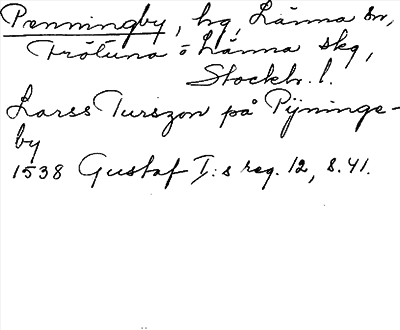 Penningby, hg, Länna sn,
Frötuna o Länna skg,
Stockh. l.
Larss Turszon på Pijninge-
by
1538 Gustaf I:s reg. 12, s. 41.